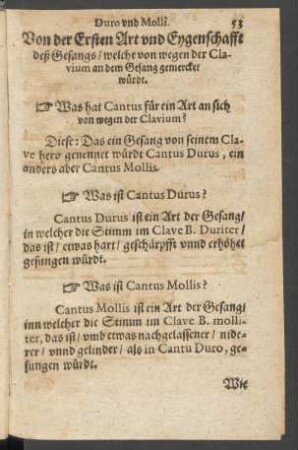 Duro vnd Molli. 53
Von der Ersten Art vnd Eygenschafft
deß Gesangs / welche von wegen der Cla-
vium an dem Gesang gemercket
würdt.
☞ Was hat Cantus für ein Art an sich
von wegen der Clavium?
Diese: Das ein Gesang von seinem Cla-
ve hero genennet würdt Cantus Durus, ein
anders aber Cantus Mollis.
☞ Was ist Cantus Durus?
Cantus Durus ist ein Art der Gesang/
in welcher die Stimm im Clave B. Duriter/
das ist / etwas hart / geschärpfft vnnd erhöhet
gesungen würdt.
☞ Was ist Cantus Mollis?
Cantus Mollis ist ein Art der Gesang/
inn welcher die Stimm im Clave B. molli-
ter, das ist / vmd etwas nachgelassener / nide-
rer / vnnd gelinder / als in Cantu Duro, ge-
sungen würdt.
Wie